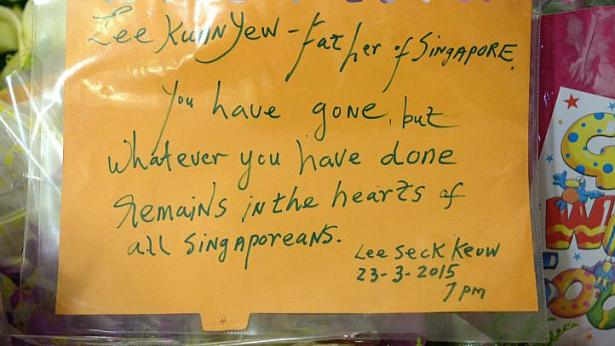 Lee Kuan Yew - Father of SINGAPORE.
You have gone, but
whatever you have done
Remains in the hearts of
all SINGAPOREANS.
Lee Seck Keuw
23-3-2015
7 pm